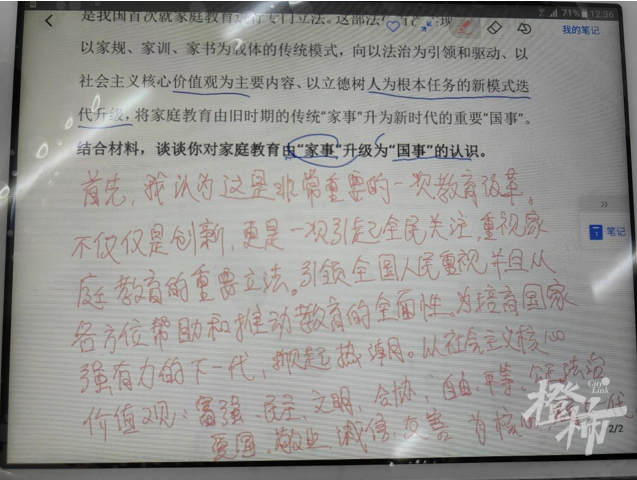 71% 12:36
是我国首次就家庭教育进行专门立法。这部法
我的笔记
以家规、家训、家书为载体的传统模式，向以法治为引领和驱动、以
社会主义核心价值观为主要内容、以立德树人为根本任务的新模式迭
代升级，将家庭教育由旧时期的传统“家事”升为新时代的重要“国事”。
结合材料，谈谈你对家庭教育由“家事”升级为“国事”的认识。
首先，我认为这是非常重要的一次教育改革。
不仅仅是创新，更是一次引起全民关注，重视家
笔记
庭教育的重要立法。引领全国人民重视，并且从
各方位帮助和推动教育的全面性。为培育国家
强有力的下一代，掀起热潮。从社会主义核心
价值观：富强、民主、文明、自由、平等、
爱国、敬业、诚信、友善 为核心
City Link
橙柿
2/2